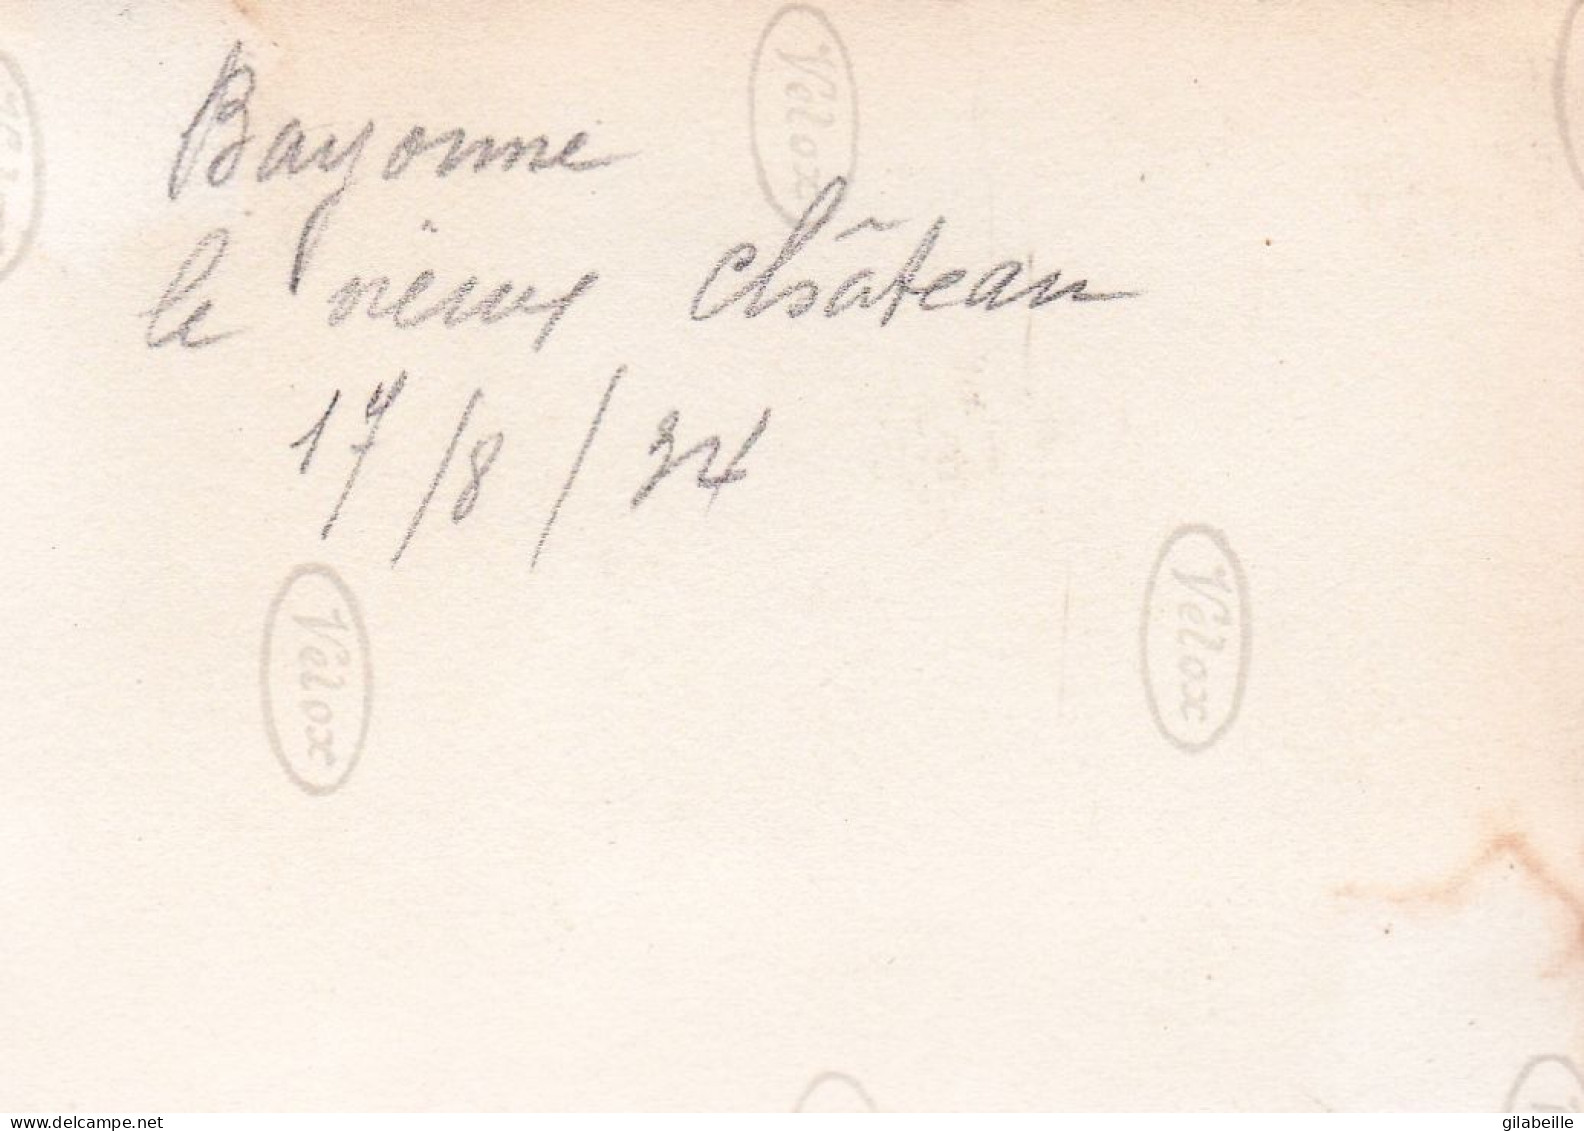 Bayonne
le vieux château
17/8/34
Velox
Velox
Velox
delcampe.net
gilabeille